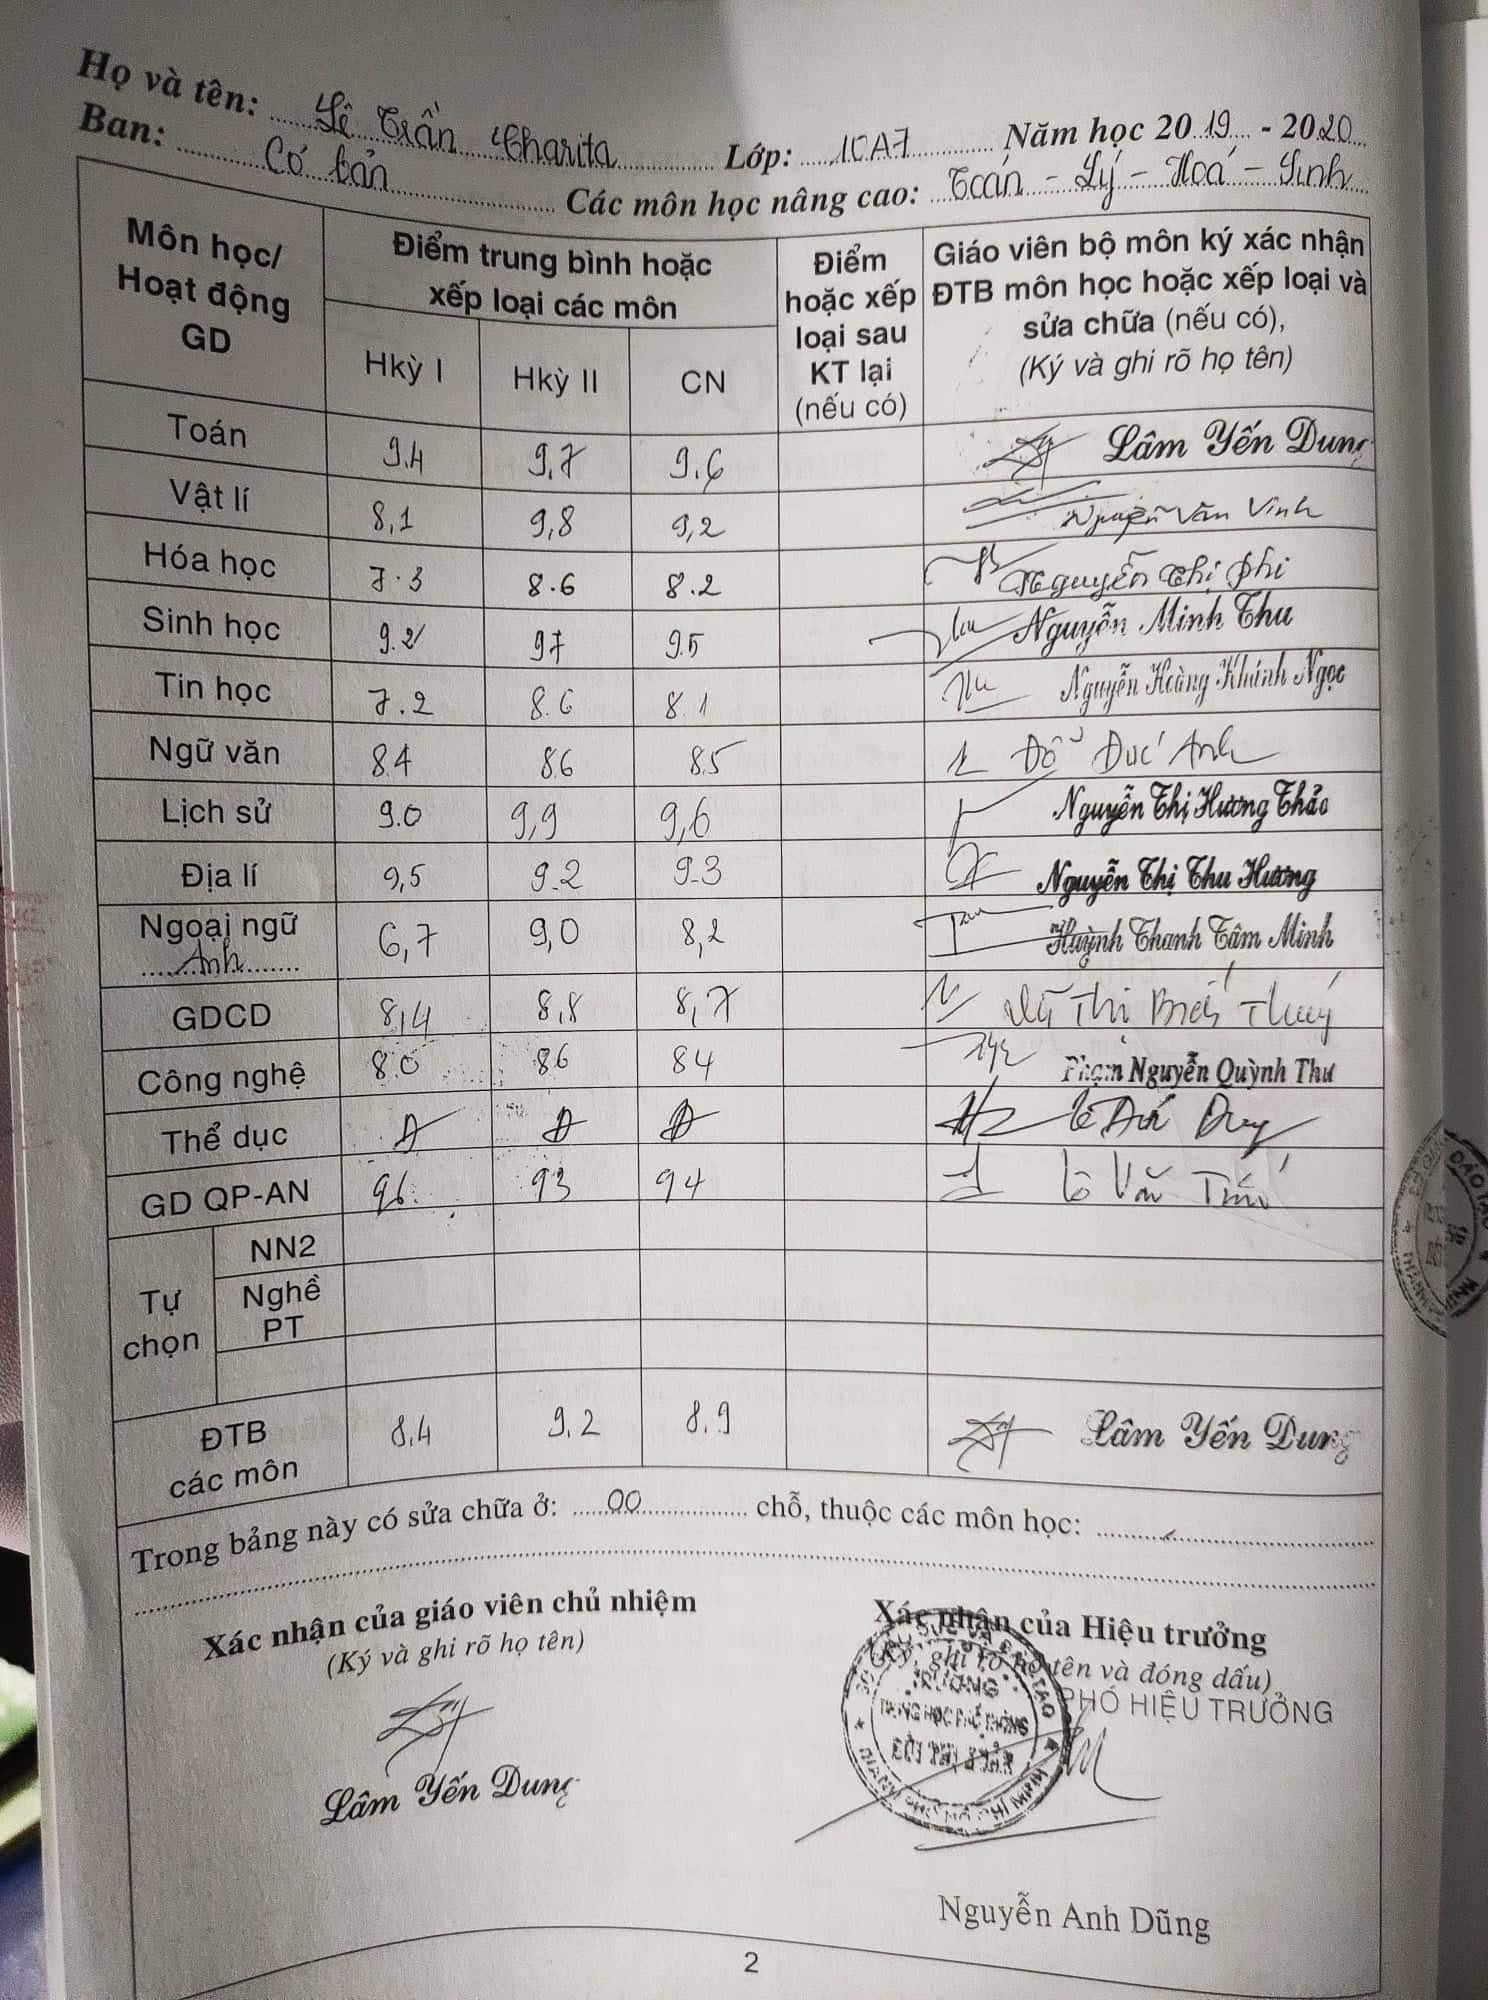 Họ và tên: Lê Trần Charita Lớp: 10A7 Năm học 2019 - 2020
Ban: Cơ bản Các môn học nâng cao: Toán - Lý - Hoá - Sinh
Môn học/ Hoạt động GD
Điểm trung bình hoặc xếp loại các môn
Điểm hoặc xếp loại sau KT lại (nếu có)
Giáo viên bộ môn ký xác nhận ĐTB môn học hoặc xếp loại và sửa chữa (nếu có), (Ký và ghi rõ họ tên)
Hkỳ I Hkỳ II CN
Toán 9.4 9,7 9.6 Lâm Yến Dung
Vật lí 8,1 9,8 9,2 Nguyễn Văn Vinh
Hóa học 7.3 8.6 8.2 Nguyễn Thị Phi
Sinh học 9.2 97 9.5 Nguyễn Minh Thu
Tin học 7.2 8.6 8.1 Nguyễn Hoàng Khánh Ngọc
Ngữ văn 84 86 8.5 Đỗ Đức Anh
Lịch sử 9.0 9,9 9,6 Nguyễn Thị Hương Thảo
Địa lí 9,5 9.2 9.3 Nguyễn Thị Thu Hương
Ngoại ngữ Anh 6,7 9,0 8,2 Huỳnh Thanh Tâm Minh
GDCD 8,4 8,8 8,7 Thị Thuý
Công nghệ 8.0 86 84 Phạm Nguyễn Quỳnh Thư
Thể dục Đ Đ Đ Lê Duy
GD QP-AN 96 93 94 Văn
Tự chọn
NN2
Nghề PT
ĐTB các môn 8,4 9,2 8,9 Lâm Yến Dung
Trong bảng này có sửa chữa ở: 00 chỗ, thuộc các môn học:
Xác nhận của giáo viên chủ nhiệm
(Ký và ghi rõ họ tên)
Lâm Yến Dung
Xác nhận của Hiệu trưởng
(Ký, ghi rõ họ tên và đóng dấu)
PHÓ HIỆU TRƯỞNG
TRƯỜNG
TRUNG HỌC PHỔ THÔNG
Nguyễn Anh Dũng
2